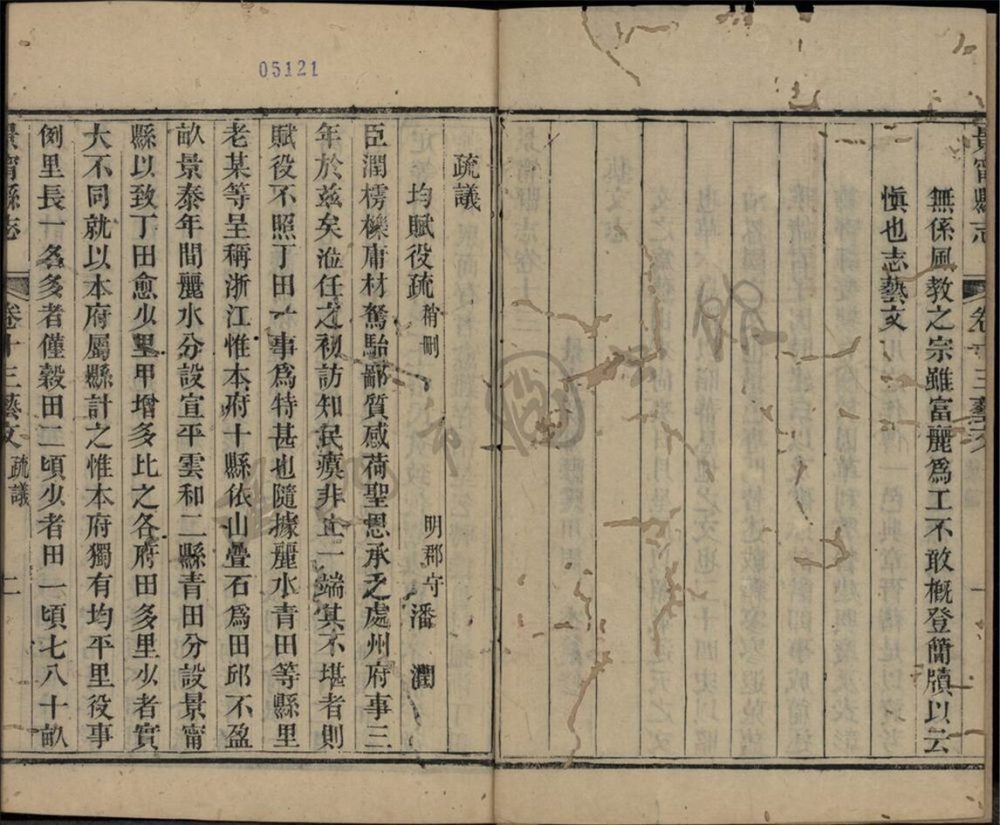 景甯縣志
卷十三藝文
一
無係風教之宗雖富麗爲工不敢概登簡牘以云
愼也志藝文
05121
疏議
均賦役疏 稍刪 明郡守潘 潤
臣潤樗櫟庸材駑駘鄙質感荷聖恩承乏處州府事三
年於茲矣涖任之初訪知民瘼非止一端其不堪者則
賦役不照丁田一事爲特甚也隨據麗水青田等縣里
老某等呈稱浙江惟本府十縣依山疊石爲田邱不盈
畝景泰年間麗水分設宣平雲和二縣青田分設景甯
縣以致丁田愈少里甲增多比之各府田多里少者實
大不同就以本府屬縣計之惟本府獨有均平里役事
例里長一名多者僅穀田二頃少者田一頃七八十畝
景甯縣志
卷十三藝文 疏議
二